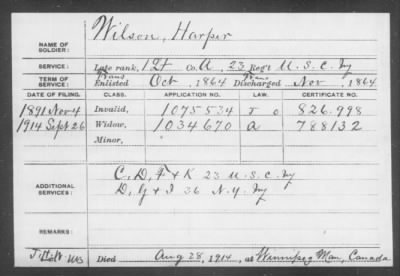 NAME OF SOLDIER: Wilson, Harper
SERVICE: Late rank, 1 Lt Co. A, 23 Reg't U.S.C. Inf
TERM OF SERVICE: Trans Enlisted Oct, 1864 Trans Discharged Nov, 1864
DATE OF FILING. CLASS. APPLICATION NO. LAW. CERTIFICATE NO.
1891 Nov 4 Invalid, 1075534 J O 826.998
1914 Sept 26 Widow, 1034670 a 788132
Minor,
ADDITIONAL SERVICES: C, D, F & K 23 U.S.C. Inf
D, G & I 36 N.Y. Inf
REMARKS:
Died Aug 28, 1914, at Winnipeg Man, Canada